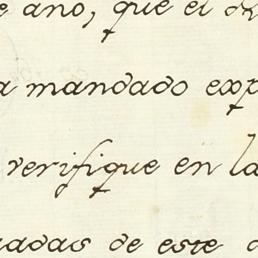 e ano, que el
a mandado exp
verifique en la
adas de este